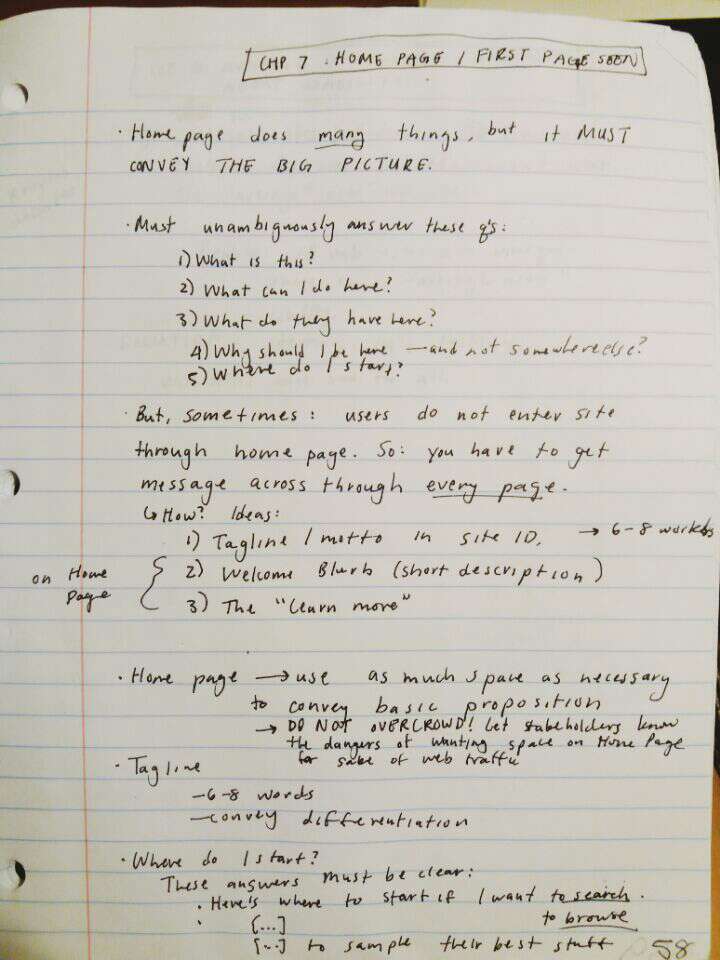 CHP 7 : HOME PAGE / FIRST PAGE SEEN
· Home page does many things, but it MUST
CONVEY THE BIG PICTURE.
· Must unambiguously answer these q's:
1) What is this?
2) What can I do here?
3) What do they have here?
4) Why should I be here — and not somewhere else?
5) Where do I start?
· But, sometimes: users do not enter site
through home page. So: you have to get
message across through every page.
↳ How? Ideas:
1) Tagline / motto in site ID. → 6-8 words
on Home Page { 2) Welcome Blurb (short description)
3) The "learn more"
· Home page → use as much space as necessary
to convey basic proposition
→ DO NOT OVERCROWD! Let stakeholders know
the dangers of wanting space on Home Page
for sake of web traffic
· Tagline
- 6-8 words
- convey differentiation
· Where do I start?
These answers must be clear:
· Here's where to start if I want to search.
· [...] to browse
[...] to sample their best stuff
58